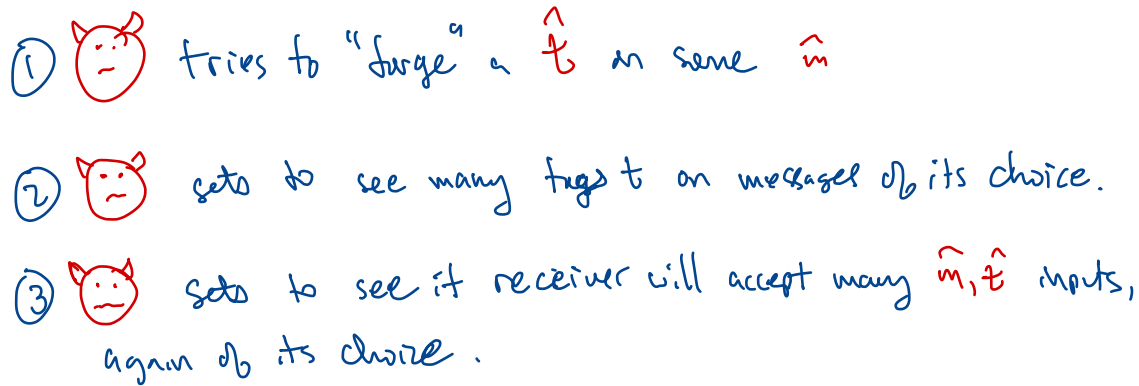 ① tries to "forge" a t̂ on some m̂
② gets to see many tags t on messages of its choice.
③ gets to see if receiver will accept many m̂, t̂ inputs,
again of its choice.